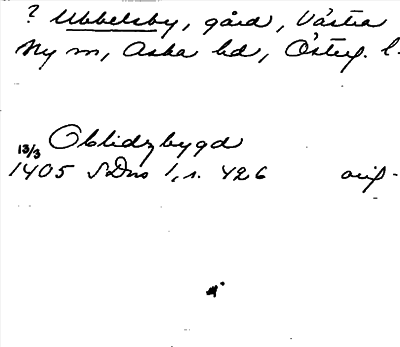 ? Ubbelsby, gård, Västra
Ny sn, Aska hd, Österg. l.
Obblidzbygd
13/3
1405 SDns 1, s. 426 orig.